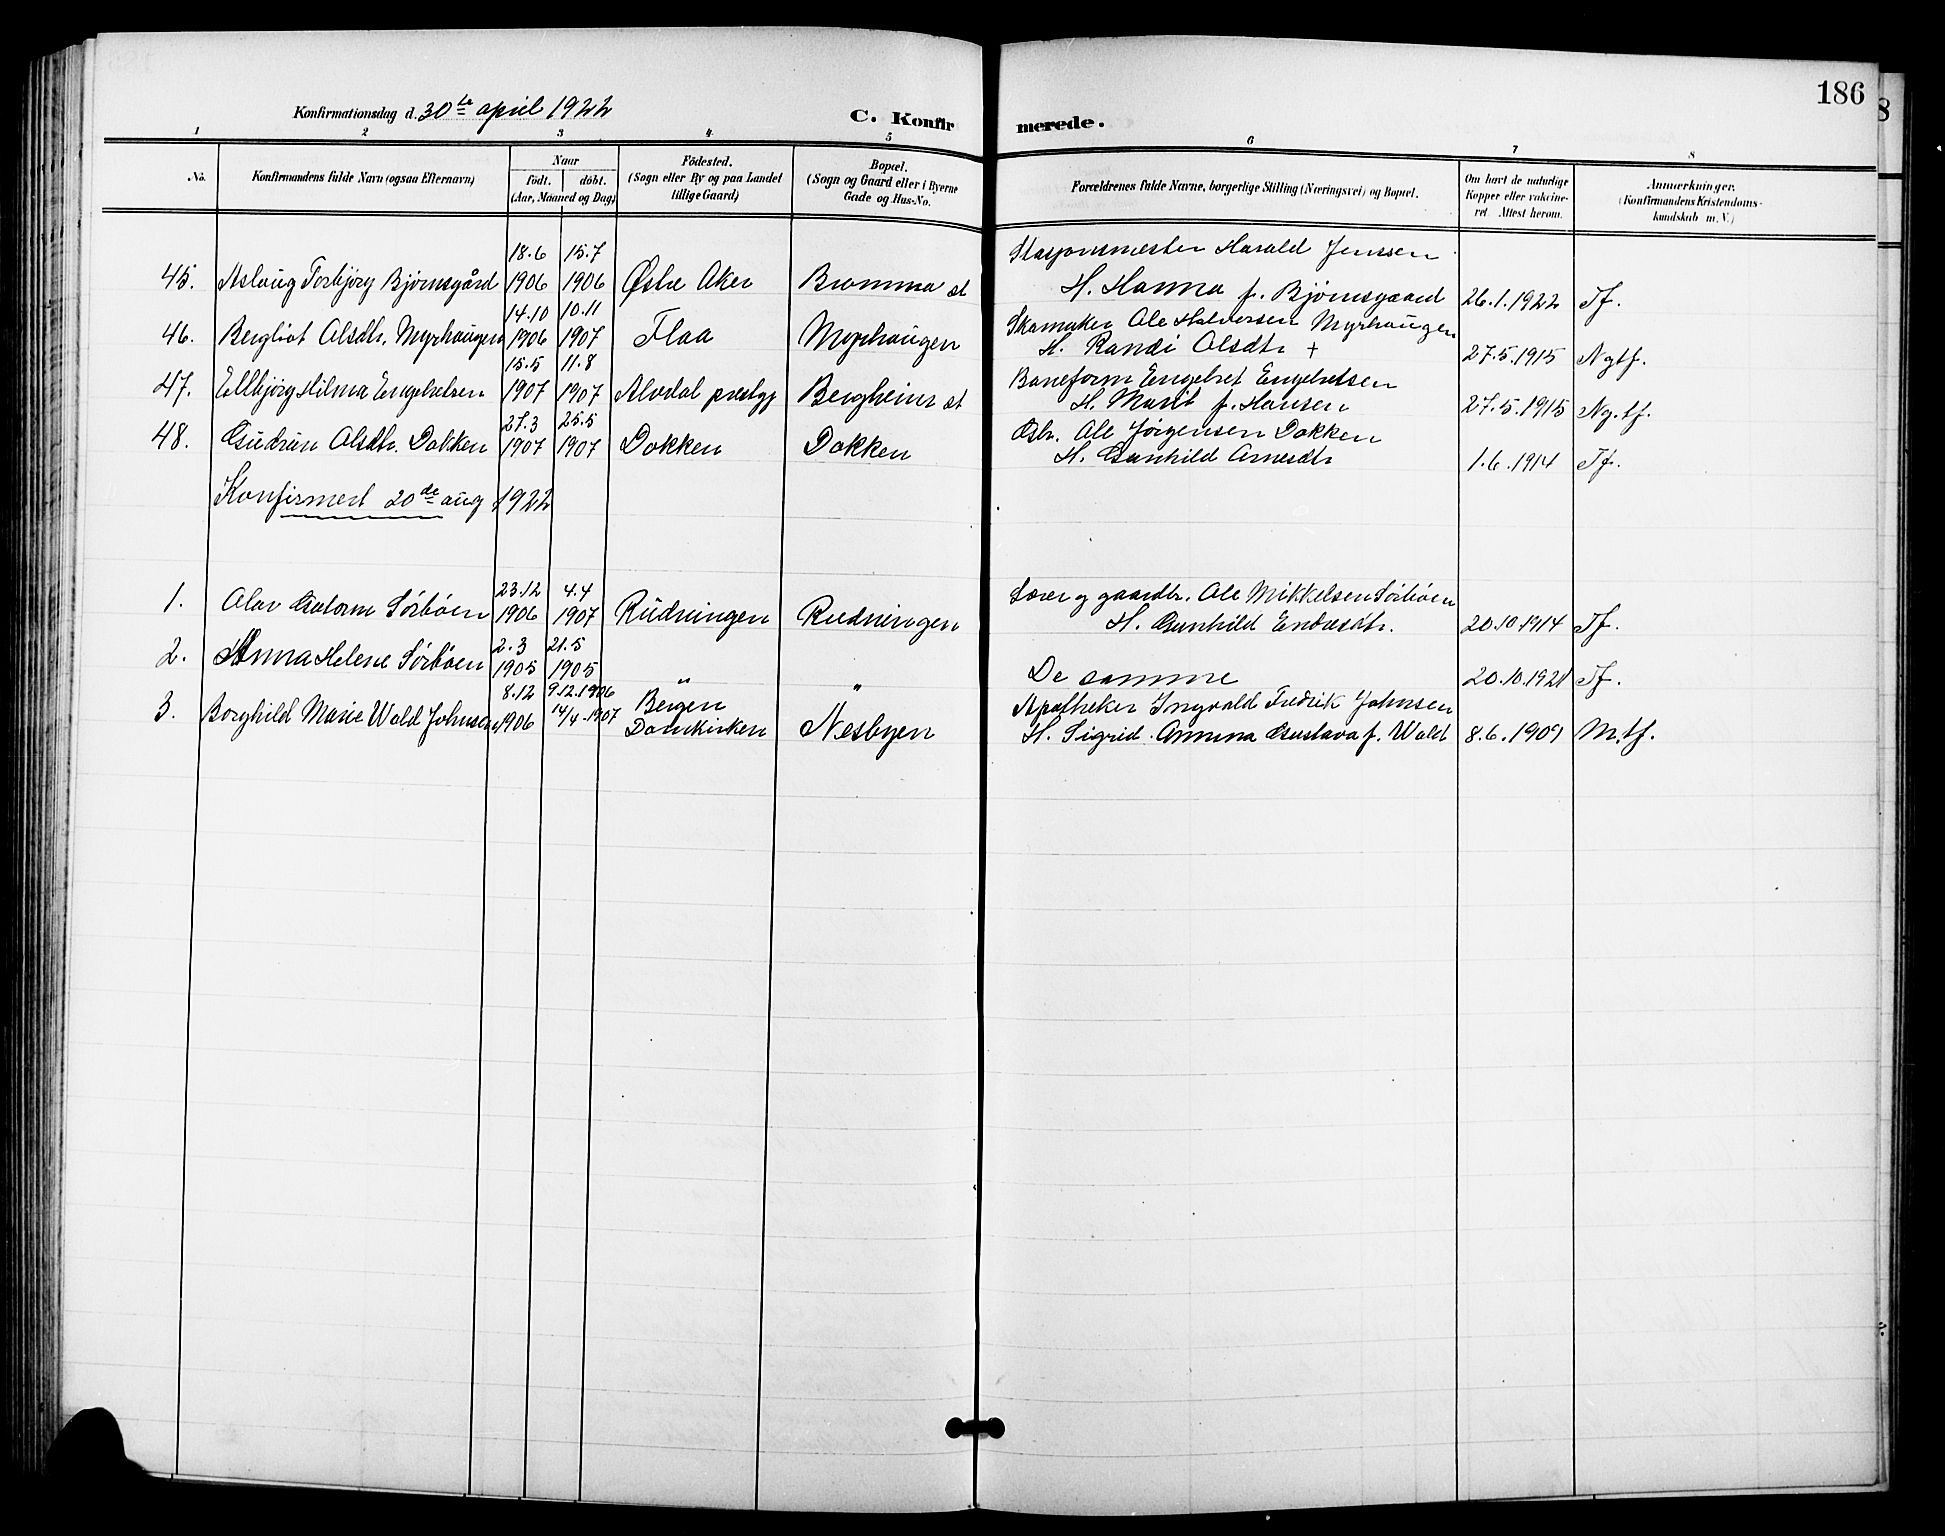 186
Konfirmationsdag d. 30te april 1922
C. Konfirmerede.
1 2 3 4 5 6 7 8
No.
Konfirmandens fulde Navn (ogsaa Efternavn)
Naar
født. døbt.
(Aar, Maaned og Dag)
Födested.
(Sogn eller By og paa Landet
tillige Gaard)
Bopæl.
(Sogn og Gaard eller i Byerne
Gade og Hus-No.
Forældrenes fulde Navne, borgerlige Stilling (Næringsvei) og Bopæl.
Om havt de naturlige
Kopper eller vakcine-
ret. Attest herom.
Anmærkninger.
(Konfirmandens Kristendoms-
kundskab m. V.)
18.6 15.7 Stasjonsmester Harald Jenssen
45. Aslaug Torbjørg Bjørnsgård 1906 1906 Østre Aker Bromma st H. Hanna f. Bjørnsgaard 26.1.1922 Tf.
14.10 10.11 Skomaker Ole Halvorsen Myrhaugen
46. Bergliot Olsdtr. Myrhaugen 1906 1907 Flaa Myrhaugen H. Randi Olsdtr + 27.5.1915 Ngtf.
15.5 11.8 Baneform Engebret Engebretsen
47. Ellbjørg Hilma Engebretsen 1907 1907 Alvdal prestgj Bergheim st H. Marit f. Hansen 27.5.1915 Ng.tf.
27.3 25.5 Gbr. Ole Jørgensen Dokken
48. Gudrun Olsdtr. Dokken 1907 1907 Dokken Dokken H. Gunhild Arnesdtr 1.6.1914 Tf.
Konfirmert 20de aug 1922
23.12 4.4 Lærer og gaardbr. Ole Mikkelsen Sørbøen
1. Olav Guttorm Sørbøen 1906 1907 Rudningen Rudningen H. Gunhild Endresdtr. 20.10.1914 Tf.
2.3 21.5
2. Anna Helene Sørbøen 1905 1905 " " De samme 20.10.1921 Tf.
8.12 9.12.1906 Bergen Apotheker Ingvald Fredrik Johnsen
3. Borghild Marie Wold Johnsen 1906 14/4.1907 Domkirken Nesbyen H. Sigrid Ammna Gustava f. Wold 8.6.1909 M.tf.